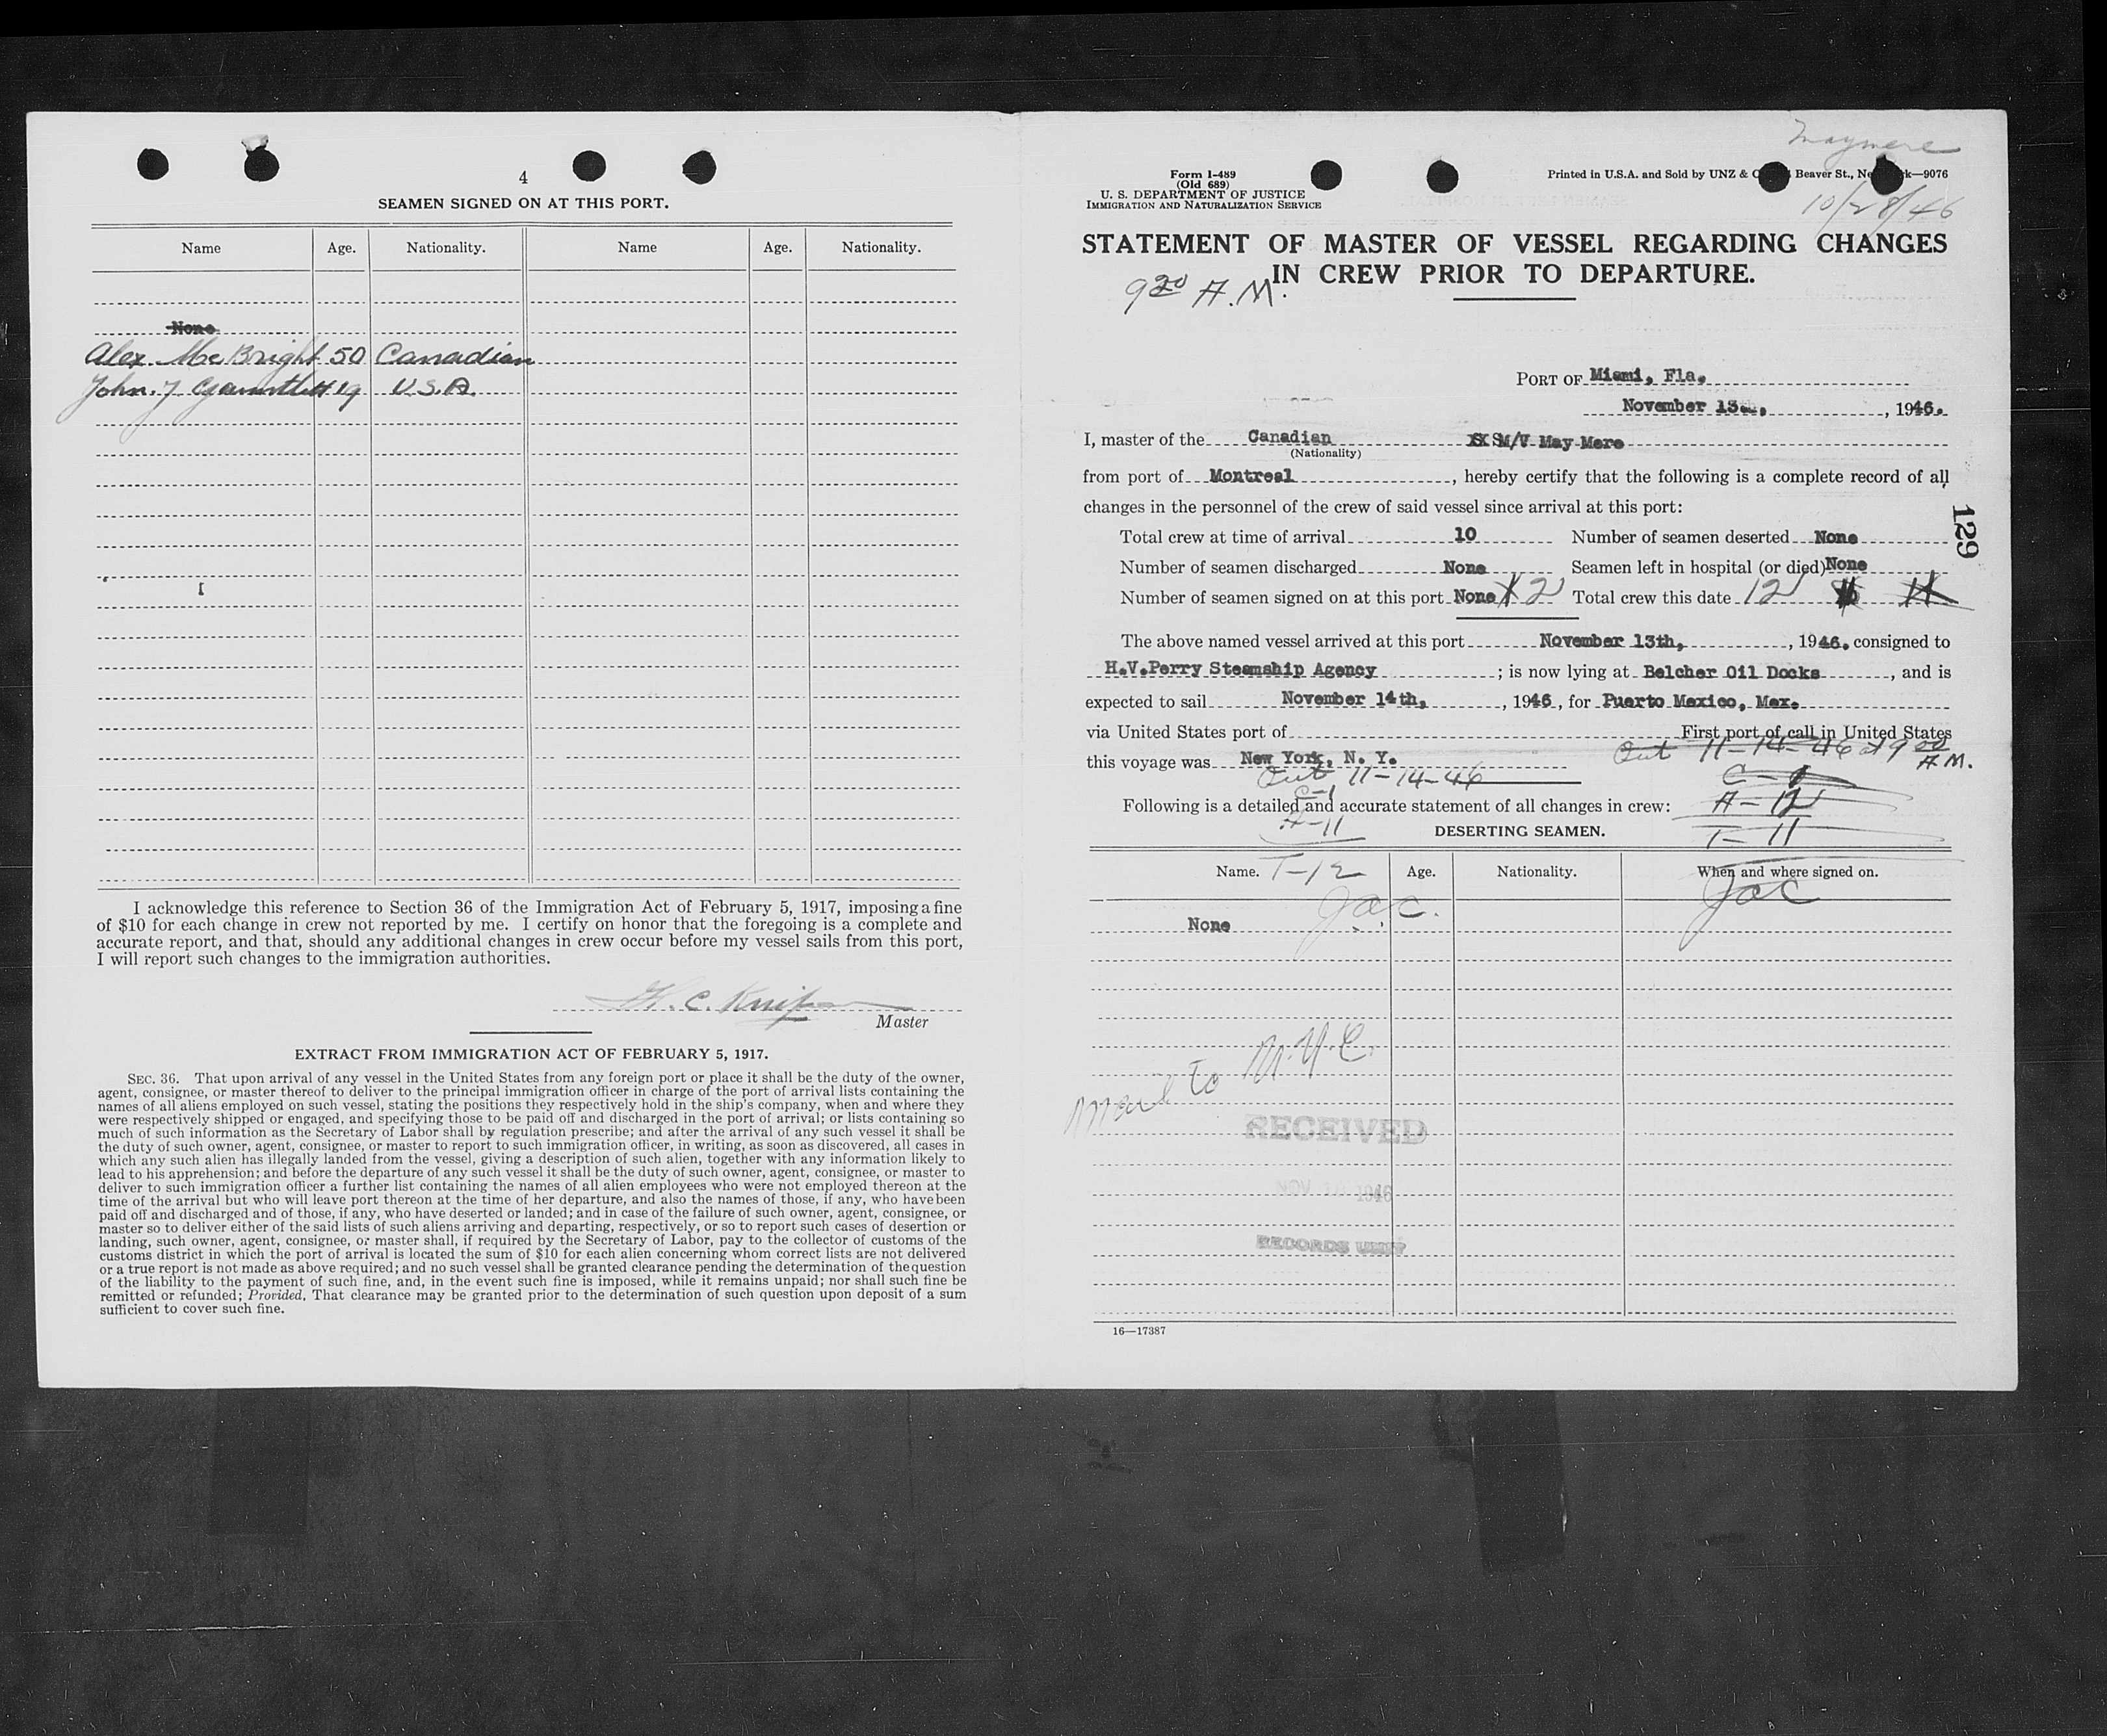 4
SEAMEN SIGNED ON AT THIS PORT.
Name Age. Nationality. Name Age. Nationality.
None
Alex. McBright 50 Canadian
John. J Gauntlett 19 U.S.A.
I acknowledge this reference to Section 36 of the Immigration Act of February 5, 1917, imposing a fine
of $10 for each change in crew not reported by me. I certify on honor that the foregoing is a complete and
accurate report, and that, should any additional changes in crew occur before my vessel sails from this port,
I will report such changes to the immigration authorities.
Master
EXTRACT FROM IMMIGRATION ACT OF FEBRUARY 5, 1917.
SEC. 36. That upon arrival of any vessel in the United States from any foreign port or place it shall be the duty of the owner,
agent, consignee, or master thereof to deliver to the principal immigration officer in charge of the port of arrival lists containing the
names of all aliens employed on such vessel, stating the positions they respectively hold in the ship's company, when and where they
were respectively shipped or engaged, and specifying those to be paid off and discharged in the port of arrival; or lists containing so
much of such information as the Secretary of Labor shall by regulation prescribe; and after the arrival of any such vessel it shall be
the duty of such owner, agent, consignee, or master to report to such immigration officer, in writing, as soon as discovered, all cases in
which any such alien has illegally landed from the vessel, giving a description of such alien, together with any information likely to
lead to his apprehension; and before the departure of any such vessel it shall be the duty of such owner, agent, consignee, or master to
deliver to such immigration officer a further list containing the names of all alien employees who were not employed thereon at the
time of the arrival but who will leave port thereon at the time of her departure, and also the names of those, if any, who have been
paid off and discharged and of those, if any, who have deserted or landed; and in case of the failure of such owner, agent, consignee, or
master so to deliver either of the said lists of such aliens arriving and departing, respectively, or so to report such cases of desertion or
landing, such owner, agent, consignee, or master shall, if required by the Secretary of Labor, pay to the collector of customs of the
customs district in which the port of arrival is located the sum of $10 for each alien concerning whom correct lists are not delivered
or a true report is not made as above required; and no such vessel shall be granted clearance pending the determination of the question
of the liability to the payment of such fine, and, in the event such fine is imposed, while it remains unpaid; nor shall such fine be
remitted or refunded; Provided, That clearance may be granted prior to the determination of such question upon deposit of a sum
sufficient to cover such fine.
Maymere
Form I-489
(Old 689)
U. S. DEPARTMENT OF JUSTICE
IMMIGRATION AND NATURALIZATION SERVICE
Printed in U.S.A. and Sold by UNZ & C Beaver St., Ne k—9076
10/28/46
STATEMENT OF MASTER OF VESSEL REGARDING CHANGES
IN CREW PRIOR TO DEPARTURE.
9 20 A.M.
PORT OF Miami, Fla.
November 13th, , 1946.
I, master of the Canadian M/V May Mere
(Nationality)
from port of Montreal , hereby certify that the following is a complete record of all
changes in the personnel of the crew of said vessel since arrival at this port:
129
Total crew at time of arrival 10 Number of seamen deserted None
Number of seamen discharged None Seamen left in hospital (or died) None
Number of seamen signed on at this port None 2 Total crew this date 12 11
The above named vessel arrived at this port November 13th, , 1946. consigned to
H.V.Perry Steamship Agency ; is now lying at Belcher Oil Docks , and is
expected to sail November 14th, , 1946 , for Puerto Mexico, Mex.
via United States port of First port of call in United States
this voyage was New York, N. Y. Out 11-14-46 at 9 00 A.M.
Out 11-14-46
C-1
Following is a detailed and accurate statement of all changes in crew: A-12
A-11
T-11
DESERTING SEAMEN.
Name. Age. Nationality. When and where signed on.
T-12
JaC. JaC
None
Mail to N.Y.C.
RECEIVED
NOV 1946
RECORDS UNIT
16—17387